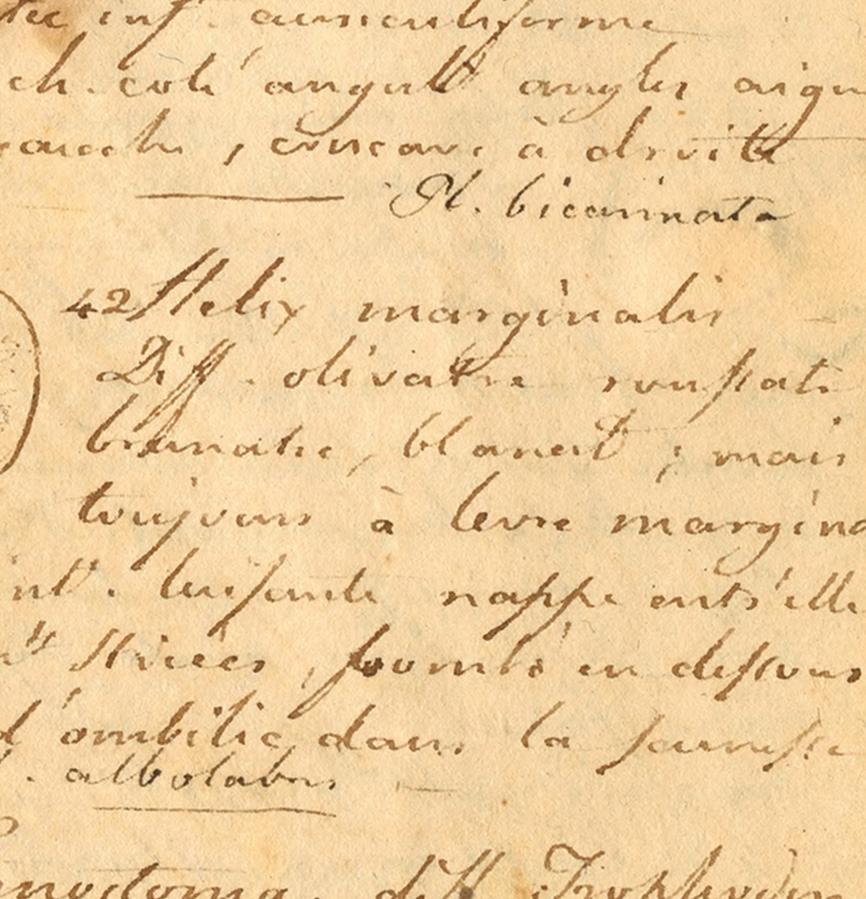 inf. auriculiforme
ch. coté angult angles aigu
gauche, concave à droite
Pl. bicarinata
42 Helix marginalis
Diff. olivatre roussatre
brunatre, blanct; mais
toujours à levre margina
int. luisante nappe
striées, bombé en dessous
d'ombilic dans la jeunesse
albolabris
diff.